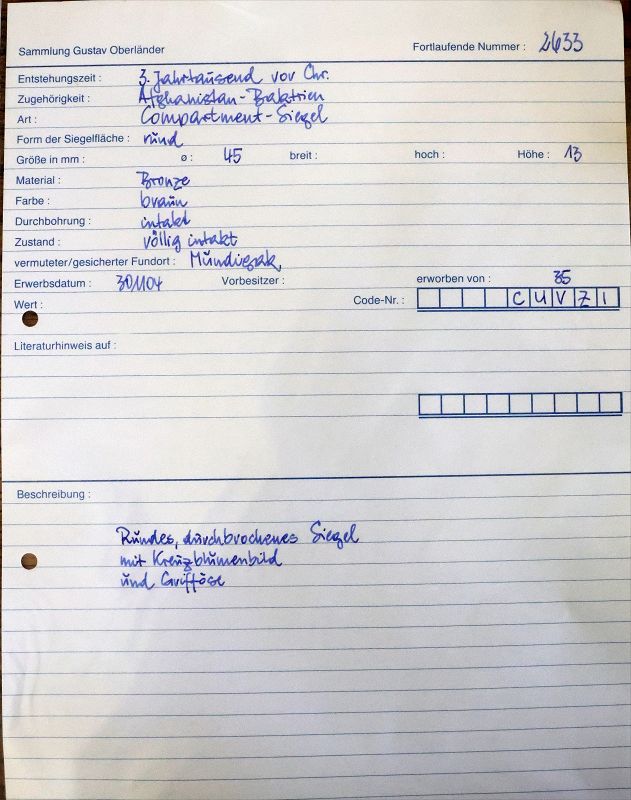 Sammlung Gustav Oberländer Fortlaufende Nummer : 2633
Entstehungszeit : 3. Jahrtausend vor Chr.
Zugehörigkeit : Afghanistan-Baktrien
Art : Compartment-Siegel
Form der Siegelfläche : rund
Größe in mm : ø : 45 breit : hoch : Höhe : 13
Material : Bronze
Farbe : braun
Durchbohrung : intakt
Zustand : völlig intakt
vermuteter/gesicherter Fundort : Mundigak,
Erwerbsdatum : Vorbesitzer : erworben von : 35
Wert : Code-Nr. : C U V Z I
Literaturhinweis auf :
Beschreibung :
Rundes, durchbrochenes Siegel
mit Kreuzblumenbild
und Grifföse